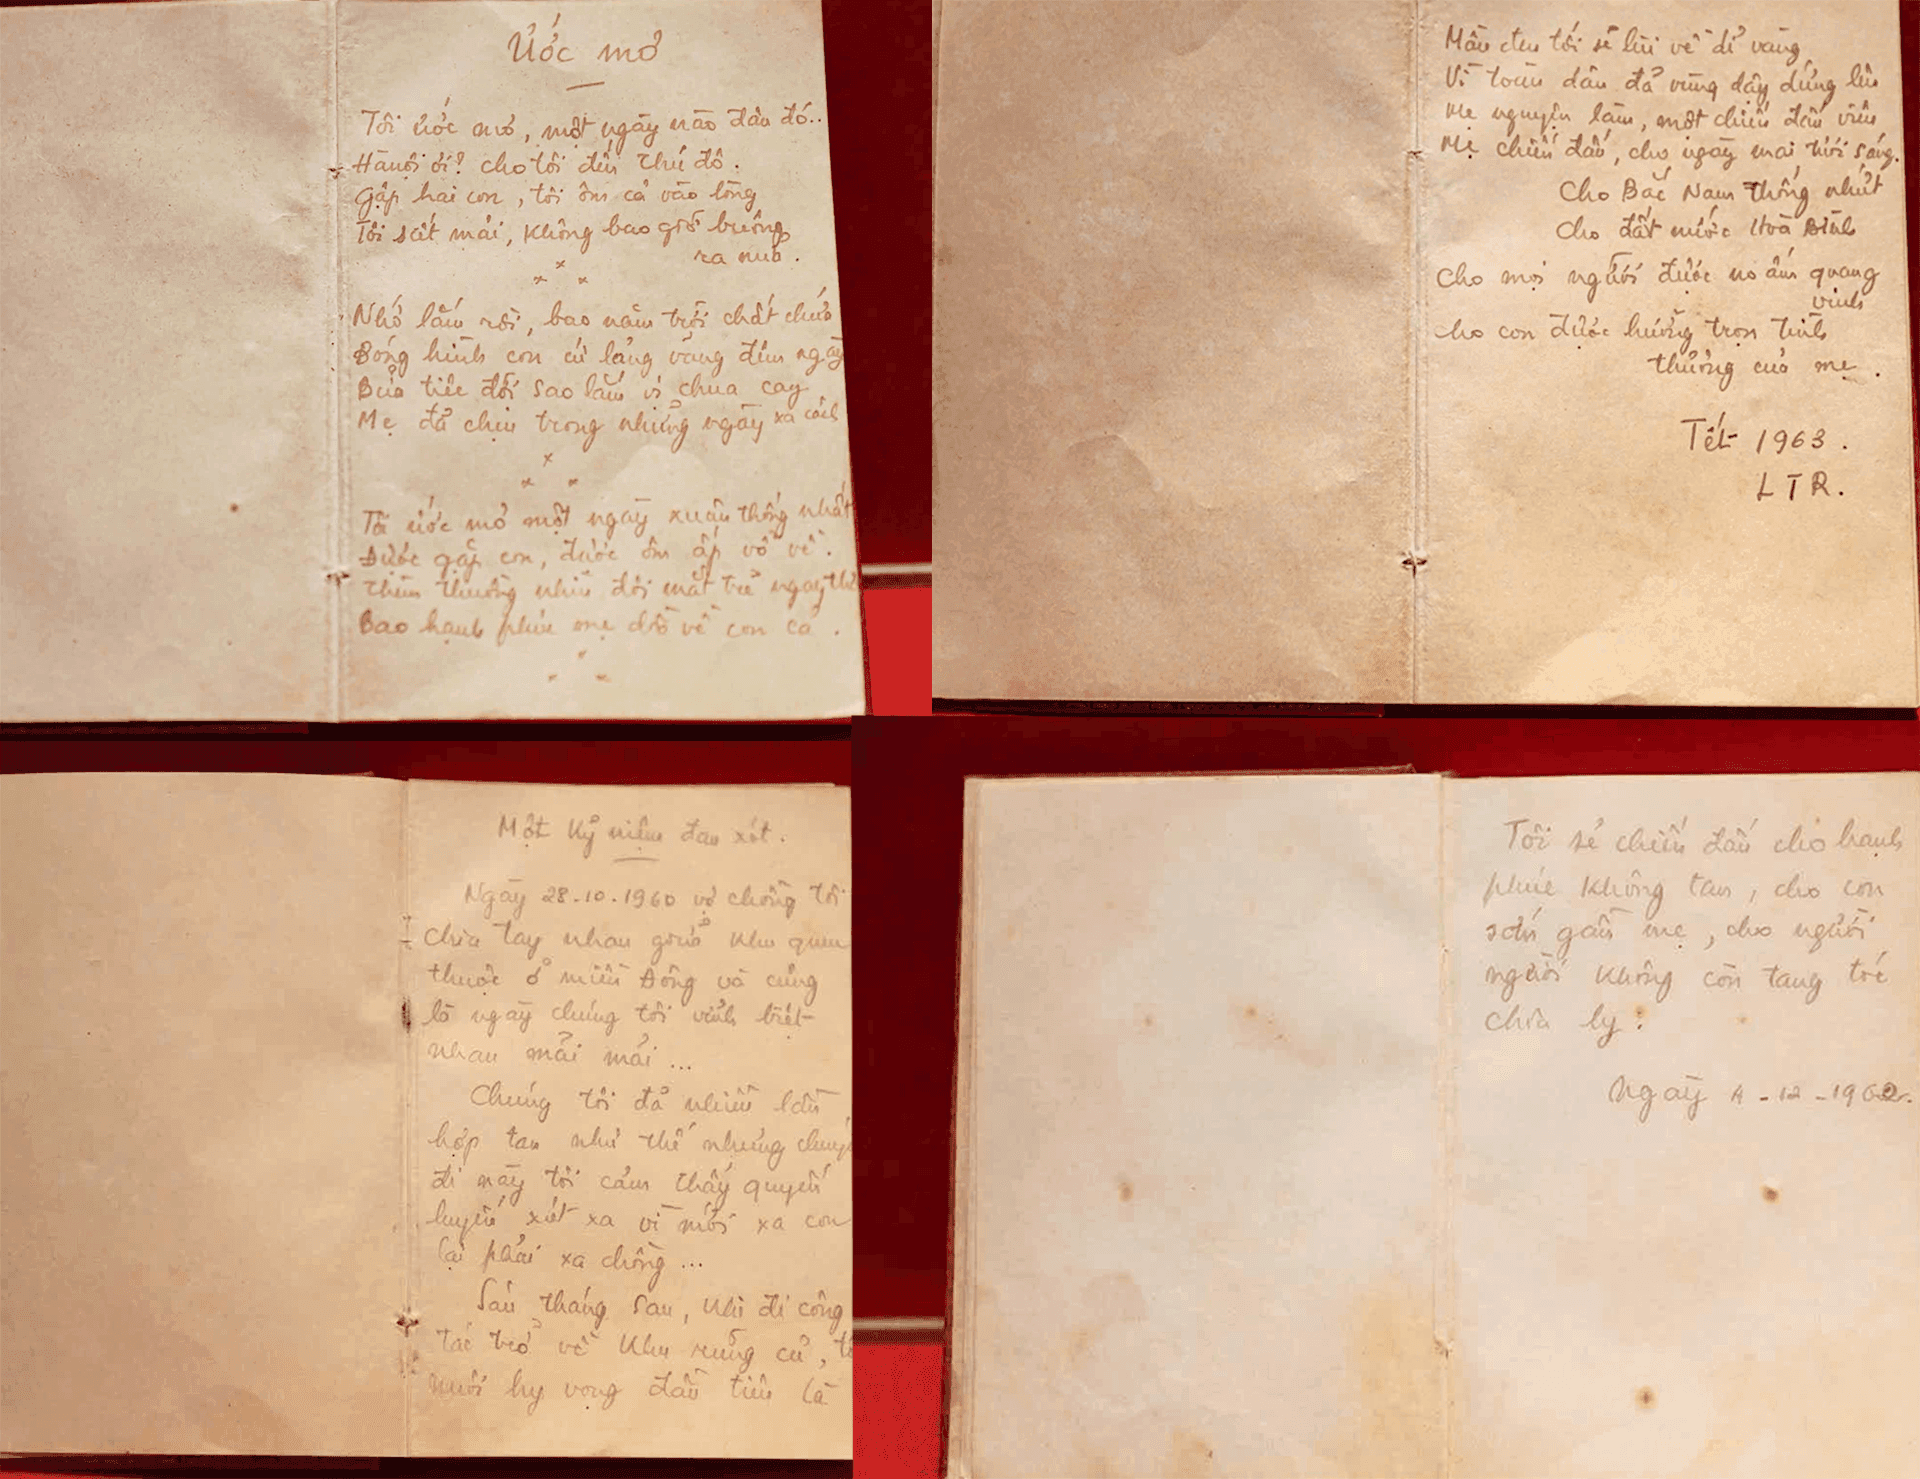 Ước mơ
Tôi ước mơ, một ngày nào đâu đó..
Hà nội ơi? cho tôi đến thủ đô.
Gặp hai con, tôi ôm cả vào lòng
Tôi siết mải, không bao giờ buông
ra nửa.
Nhớ lắm rồi, bao năm trời chất chứa
Bóng hình con cứ lảng vảng đêm ngày
Bửa tiệc đời sao lắm vị chua cay
Mẹ đả chịu trong những ngày xa cách
Tôi ước mơ một ngày xuân thống nhất
Được gặp con, được ôm ấp vỗ về.
Thèm thuồng nhìn đôi mắt trẻ ngây thơ
Bao hạnh phúc mẹ dồn về con cả.
Màn đen tối sẽ lùi về dĩ vảng
Vì toàn dân đả vùng dậy đứng lên
Mẹ nguyện làm, một chiến đấu viên
Mẹ chiến đấu, cho ngày mai tươi sáng.
Cho Bắc Nam thống nhứt
Cho đất nước Hoà Bình
Cho mọi người được no ấm quang
vinh
cho con được hưởng trọn tình
thương của mẹ.
Tết 1963.
LTR.
Một kỷ niệm đau xót.
Ngày 28-10-1960 vợ chồng tôi
chia tay nhau giữa khu quen
thuộc ở miền Đông và củng
là ngày chúng tôi vỉnh biệt
nhau mải mải...
Chúng tôi đả nhiều lần
hợp tan như thế nhưng chuyến
đi này tôi cảm thấy quyến
luyến xót xa vì mới xa con
lại phải xa chồng...
Sáu tháng sau, khi đi công
tác trở về khu rừng củ,
nuôi hy vọng đầu tiên là
Tôi sẻ chiến đấu cho hạnh
phúc không tan, cho con
sớm gần mẹ, cho người
người không còn tang tóc
chia ly.
Ngày 4-12-1962.